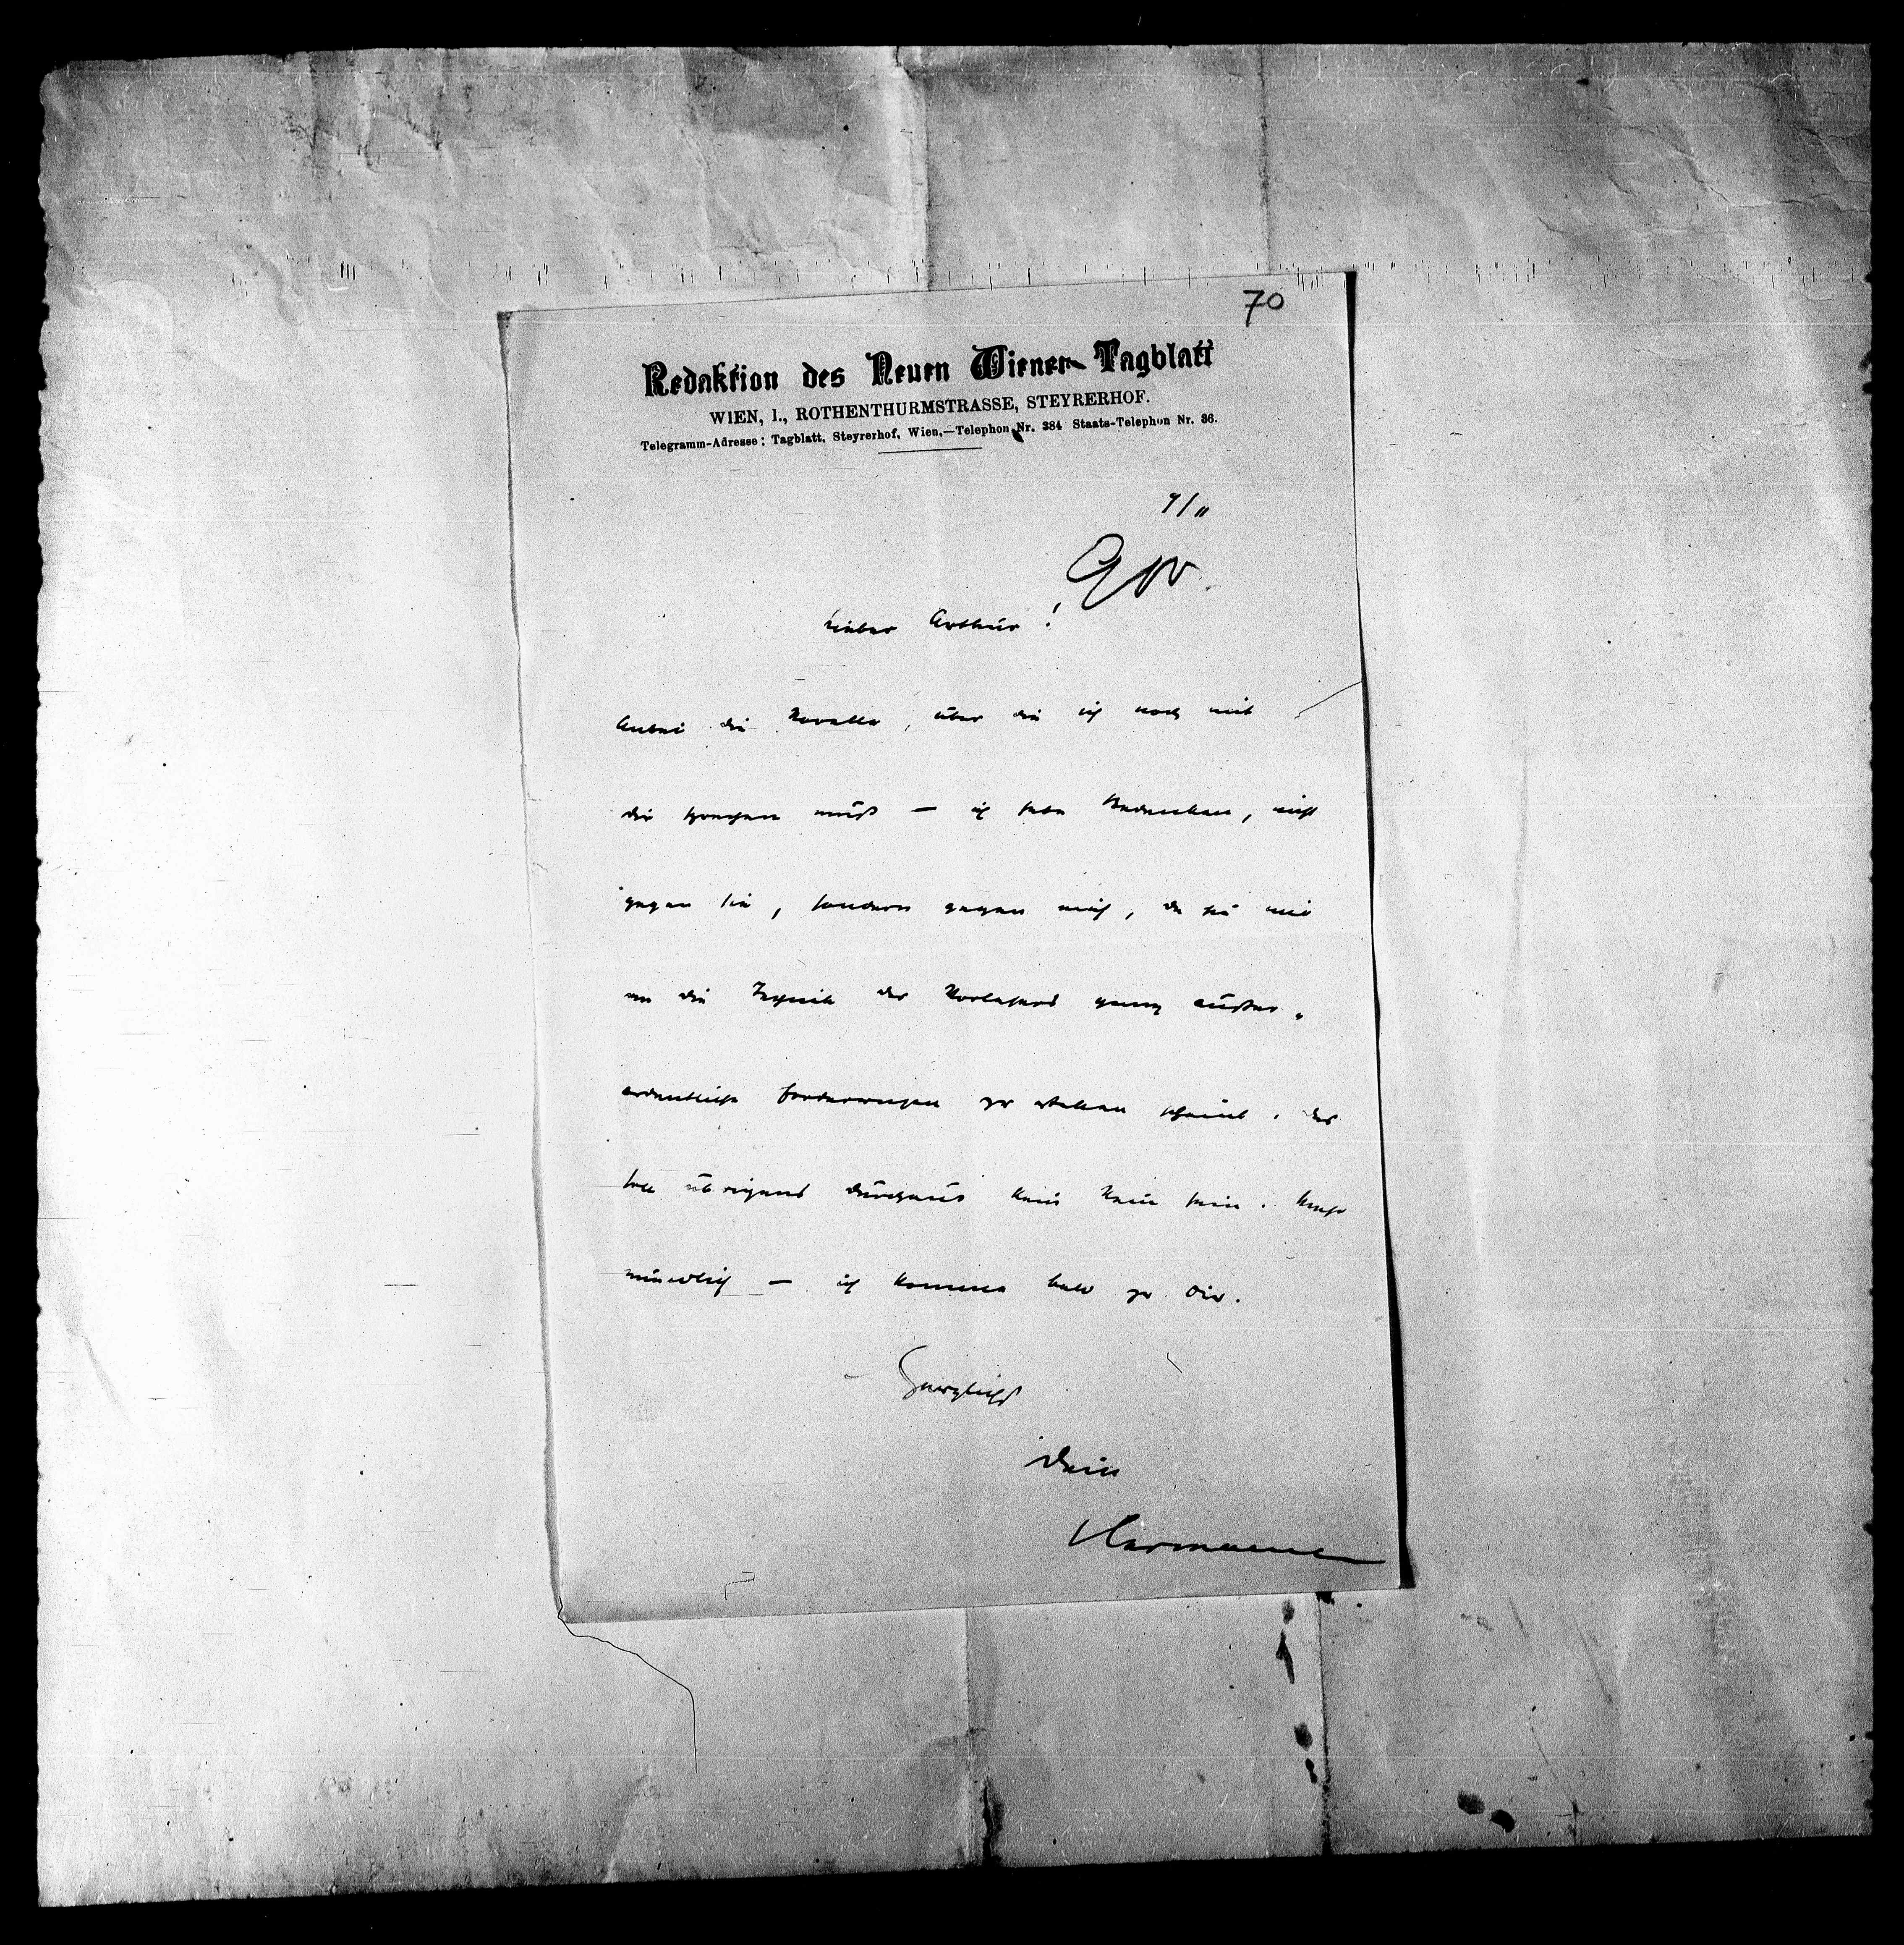 70
Redaktion des Neuen Wiener Tagblatt
WIEN, I., ROTHENTHURMSTRASSE, STEYRERHOF.
Telegramm-Adresse: Tagblatt, Steyrerhof, Wien,—Telephon Nr. 384 Staats-Telephon Nr. 36.
Lieber Arthur!
Anbei die Novelle, über die ich noch mit
dir sprechen muß — ich habe Bedenken, nicht
gegen sie, sondern gegen mich, da sie mir
an die Technik des Vorlesers ganz außer-
ordentliche Forderungen zu stellen scheint. Das
soll übrigens durchaus kein Nein sein. Mehr
mündlich — ich komme bald zu Dir.
Herzlichst
Dein
Hermann